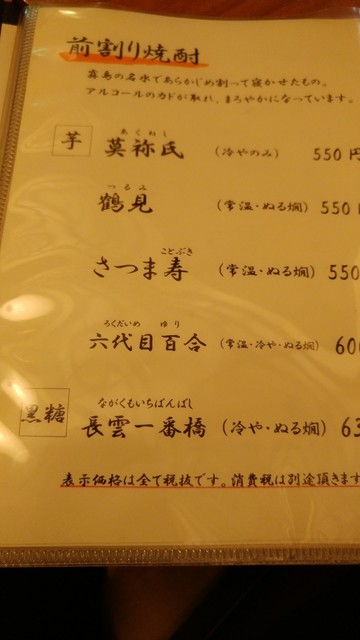 前割り焼酎
霧島の名水であらかじめ割って寝かせたもの。
アルコールのカドが取れ、まろやかになっています。
芋
あくねし
莫祢氏 (冷やのみ) 550円
つるみ
鶴見 (常温・ぬる燗) 550
ことぶき
さつま寿 (常温・ぬる燗) 550
ろくだいめ ゆり
六代目百合 (常温・冷や・ぬる燗) 60
黒糖
ながくもいちばんばし
長雲一番橋 (冷や・ぬる燗) 63
表示価格は全て税抜です。消費税は別途頂きます